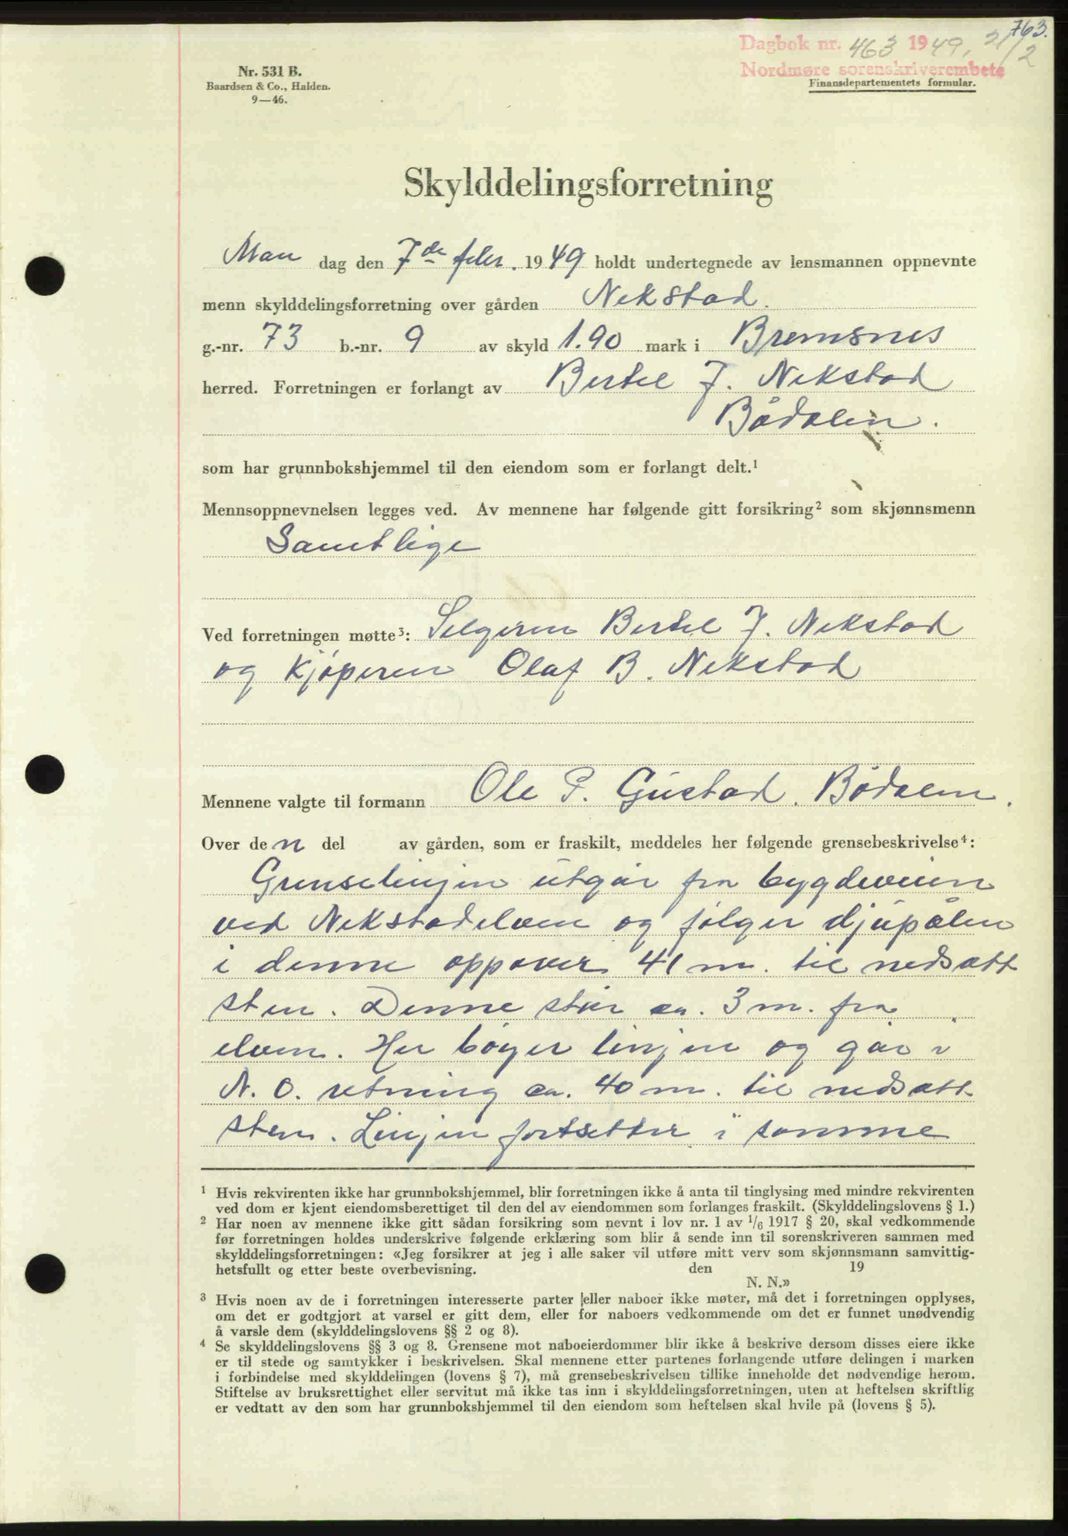 763.
Dagbok nr. 463 1949, 21/2
Nordmøre sorenskriverembete
Nr. 531 B.
Baardsen & Co., Halden.
9—46.
Finansdepartementets formular.
Skylddelingsforretning
Man dag den 7de febr. 1949 holdt undertegnede av lensmannen oppnevnte
menn skylddelingsforretning over gården Nekstad.
g.-nr. 73 b.-nr. 9 av skyld 1.90 mark i Bremsnes
herred. Forretningen er forlangt av Bertel J. Nekstad
Bådalen.
som har grunnbokshjemmel til den eiendom som er forlangt delt.¹
Mennsoppnevnelsen legges ved. Av mennene har følgende gitt forsikring² som skjønnsmenn
Samtlige
Ved forretningen møtte³: Selgeren Bertel J. Nekstad
og kjøperen Olaf B. Nekstad
Mennene valgte til formann Ole P. Gustad. Bødalen.
Over den del av gården, som er fraskilt, meddeles her følgende grensebeskrivelse⁴:
Grenselinjen utgår fra bygdeveien
ved Nekstadelven og følger djupålen
i denne oppover 41 m. til nedsatt
sten. Denne står ca. 3 m. fra
elven. Her bøyer linjen og går i
N. O. retning ca. 40 m. til nedsatt
sten. Linjen fortsetter i samme
¹ Hvis rekvirenten ikke har grunnbokshjemmel, blir forretningen ikke å anta til tinglysing med mindre rekvirenten
ved dom er kjent eiendomsberettiget til den del av eiendommen som forlanges fraskilt. (Skylddelingslovens § 1.)
² Har noen av mennene ikke gitt sådan forsikring som nevnt i lov nr. 1 av 1/6 1917 § 20, skal vedkommende
før forretningen holdes underskrive følgende erklæring som blir å sende inn til sorenskriveren sammen med
skylddelingsforretningen: «Jeg forsikrer at jeg i alle saker vil utføre mitt verv som skjønnsmann samvittig-
hetsfullt og etter beste overbevisning. den 19
N. N.»
³ Hvis noen av de i forretningen interesserte parter eller naboer ikke møter, må det i forretningen opplyses,
om det er godtgjort at varsel er gitt dem, eller for naboers vedkommende om det er funnet unødvendig
å varsle dem (skylddelingslovens §§ 2 og 8).
⁴ Se skylddelingslovens §§ 3 og 8. Grensene mot naboeierdommer blir ikke å beskrive dersom disses eiere ikke
er til stede og samtykker i beskrivelsen. Skal mennene etter partenes forlangende utføre delingen i marken
i forbindelse med skylddelingen (lovens § 7), må grensebeskrivelsen tillike inneholde det nødvendige herom.
Stiftelse av bruksrettighet eller servitut må ikke tas inn i skylddelingsforretningen, uten at heftelsen skriftlig
er vedtatt av den som har grunnbokshjemmel til den eiendom som heftelsen skal hvile på (lovens § 5).